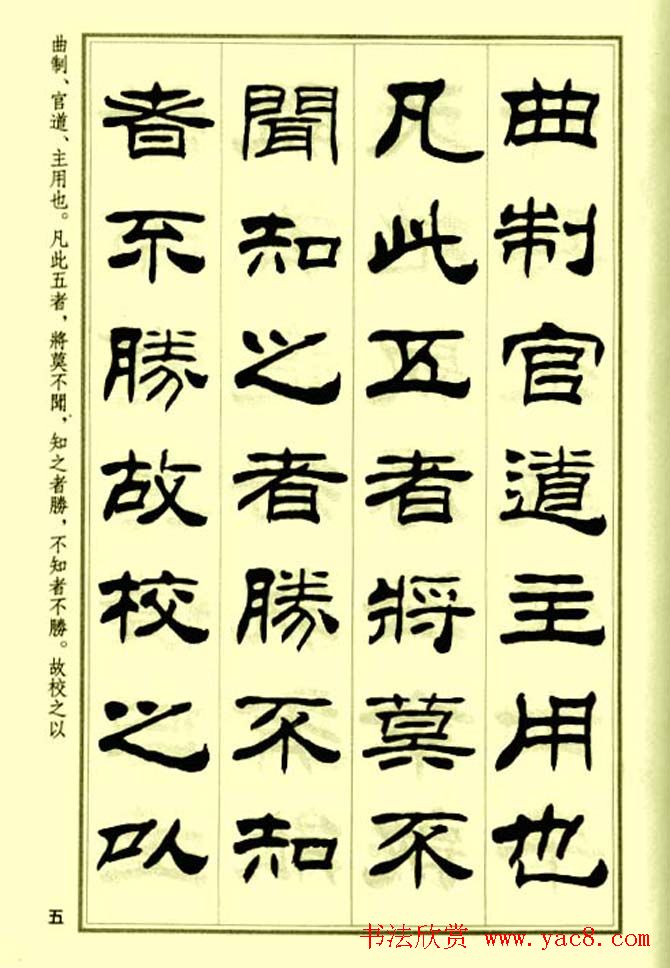 曲制官道主用也
凡此五者將莫不
聞知之者勝不知
者不勝故校之以
曲制、官道、主用也。凡此五者，將莫不聞，知之者勝，不知者不勝。故校之以
五
书法欣赏 www.yac8.com